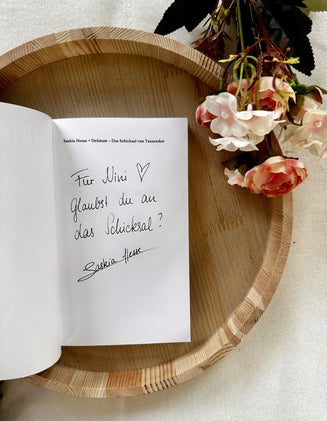 Saskia Hesse • Defatum – Das Schicksal von Tausenden
Für Nini ♡
Glaubst du an
das Schicksal?
Saskia Hesse